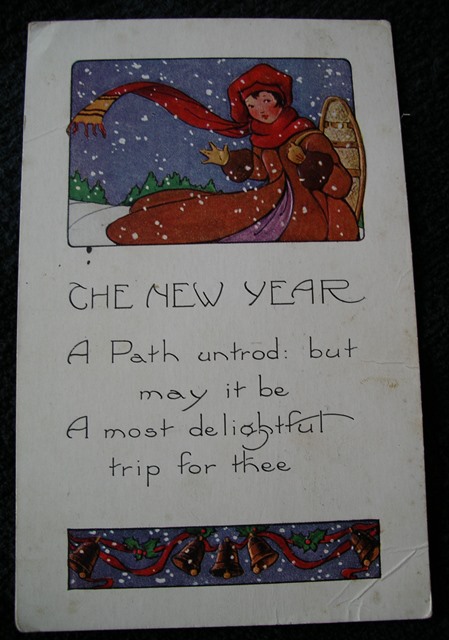 THE NEW YEAR
A Path untrod: but
may it be
A most delightful
trip for thee